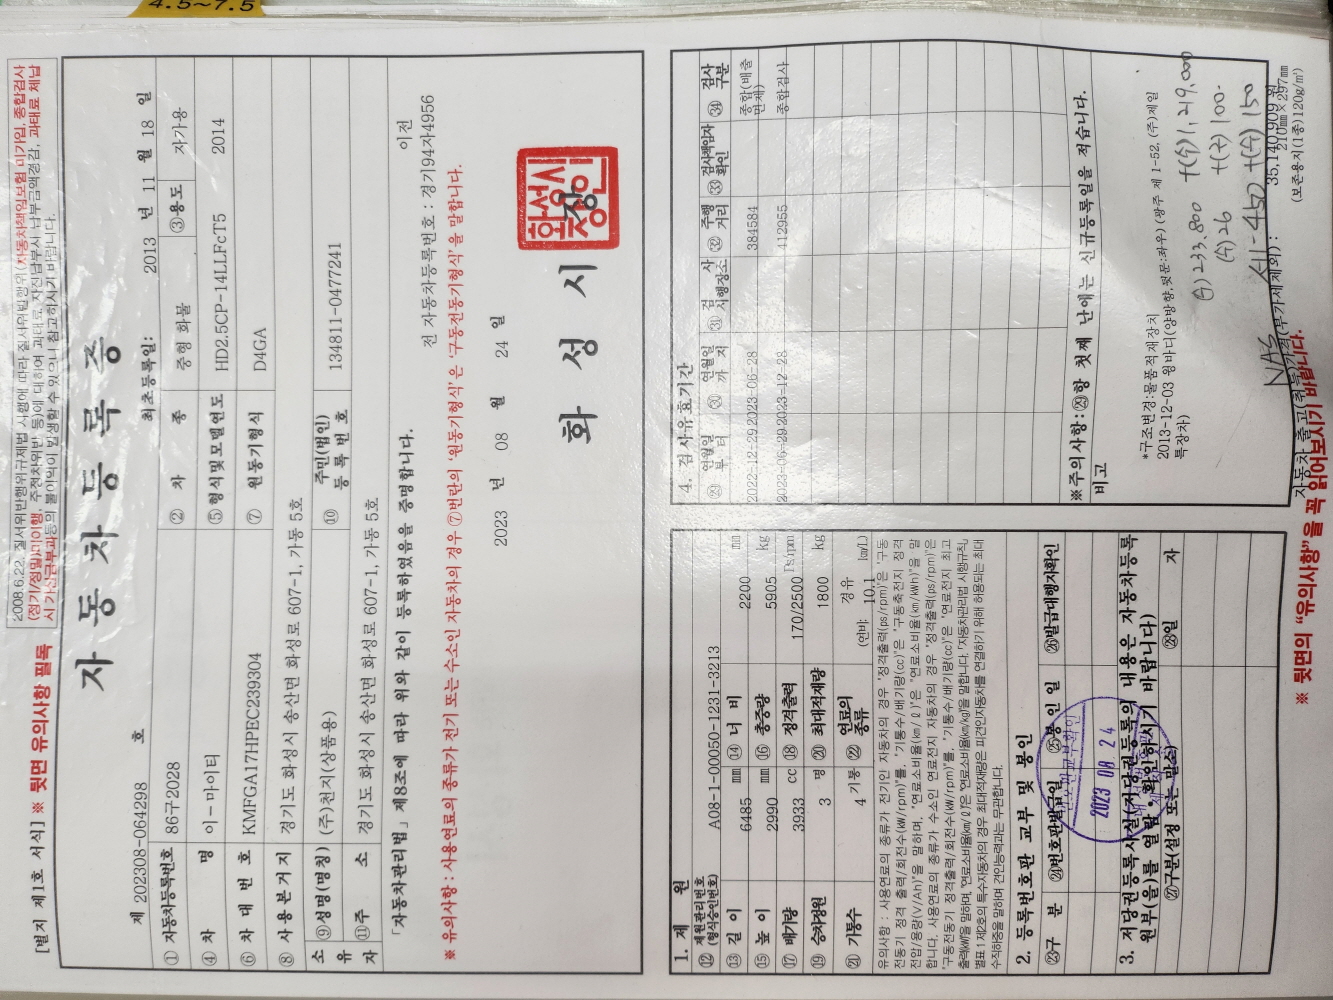 4.5~7.5
2008.6.22. 질서위반행위규제법 시행에 따라 질서위반행위(자동차책임보험 미가입, 종합검사
(정기/정밀)미이행, 주정차위반 등)에 대하여 과태료 자진납부시 납부금액경감, 과태료 체납
시 가산금부과등의 불이익이 발생할 수 있으니 참고하시기 바랍니다.
[별지 제1호 서식] ※ 뒷면 유의사항 필독
자동차등록증
제 202308-064298 호
최초등록일: 2013 년 11 월 18 일
① 자동차등록번호 86구2028 ② 차 종 중형 화물 ③용도 자가용
④ 차 명 이-마이티 ⑤ 형식및모델연도 HD2.5CP-14LLFcT5 2014
⑥ 차 대 번 호 KMFGA17HPEC239304 ⑦ 원동기형식 D4GA
⑧ 사용본거지 경기도 화성시 송산면 화성로 607-1, 가동 5호
소유자 ⑨성명(명칭) (주)천지(상품용) ⑩ 주민(법인)등록번호 134811-0477241
⑪주 소 경기도 화성시 송산면 화성로 607-1, 가동 5호
「자동차관리법」 제8조에 따라 위와 같이 등록하였음을 증명합니다.
이전
전 자동차등록번호 : 경기94자4956
※ 유의사항: 사용연료의 종류가 전기 또는 수소인 자동차의 경우 ⑦번란의 '원동기형식'은 '구동전동기형식'을 말합니다.
2023 년 08 월 24 일
화 성 시 장
화성시장인
1. 제 원
⑫ 제원관리번호 (형식승인번호) A08-1-00050-1231-3213
⑬ 길 이 6485 mm ⑭ 너 비 2200 mm
⑮ 높 이 2990 mm ⑯ 총중량 5905 kg
⑰ 배기량 3933 cc ⑱ 정격출력 170/2500 Ps/rpm
⑲ 승차정원 3 명 ⑳ 최대적재량 1800 kg
㉑ 기통수 4 기통 ㉒ 연료의 종류 경유 (연비: 10.1 km/L)
유의사항 : 사용연료의 종류가 전기인 자동차의 경우 '정격출력(ps/rpm)'은 '구동
전동기 정격 출력/회전수(kW/rpm)'를, '기통수/배기량(cc)'은 '구동축전지 정격
전압/용량(V/Ah)'을 말하며, '연료소비율(㎞/ℓ)'은 '연료소비율(㎞/kWh)'을 말
합니다. 사용연료의 종류가 수소인 연료전지 자동차의 경우 '정격출력(ps/rpm)'은
'구동전동기 정격출력/회전수(kW/rpm)'를, '기통수/배기량(cc)'은 '연료전지 최고
출력(kW)'을 말하며, '연료소비율(㎞/ℓ)'은 '연료소비율(㎞/kg)'을 말합니다. 「자동차관리법 시행규칙」
별표 1 제2호의 특수자동차의 경우 최대적재량은 피견인자동차를 연결하기 위해 허용되는 최대
수직하중을 말하며 견인능력과는 무관합니다.
2. 등록번호판 교부 및 봉인
㉓구 분 ㉔번호판발급일 ㉕봉 인 일 ㉖발급대행자확인
2023 08 24
3. 저당권등록사실(저당권등록의 내용은 자동차등록
원부(을)를 열람 · 확인하시기 바랍니다)
㉗구분(설정 또는 말소) ㉘일 자
4. 검사유효기간
㉙ 연월일 부터 ㉚ 연월일 까지 ㉛ 검사 시행장소 ㉜ 주행거리 ㉝ 검사책임자 확인 ㉞ 검사 구분
2022-12-29 2023-06-28 384584 종합(배출면제)
2023-06-29 2023-12-28 412955 종합검사
※주의사항:㉙항 첫째 난에는 신규등록일을 적습니다.
비고
*구조변경:물품적재장치
2013-12-03 윙바디(양방향,뒷문:좌우) (광주 제 1-52, (주)제일
특장차)
수)233,800 +(수)1,219,000
(수)26 +(구)100.
시-450 +(수)150
NAS
자동차 출고(취득)가격(부가세제외) : 35,140,909 원
210㎜×297㎜
(보존용지(1종)120g/㎡)
※ 뒷면의 "유의사항"을 꼭 읽어보시기 바랍니다.